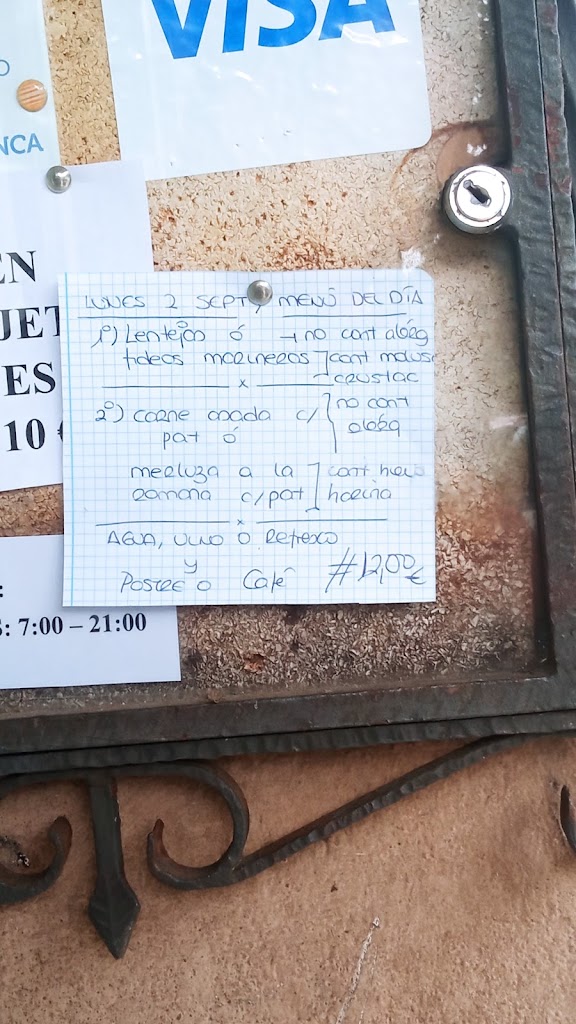 VISA
O
NCA
EN
JET
ES
10 €
LUNES 2 SEPT, MENÚ DEL DÍA
1º) Lentejas ó → no cont alérg
fideos marineros] cont molus
crustac
x
2º) carne asada c/ { no cont
pat ó alérg
merluza a la ] cont huevo
romana c/pat harina
x
AGUA, VINO O Refresco
y
POSTRE O Café #12,00€
:
S: 7:00 – 21:00